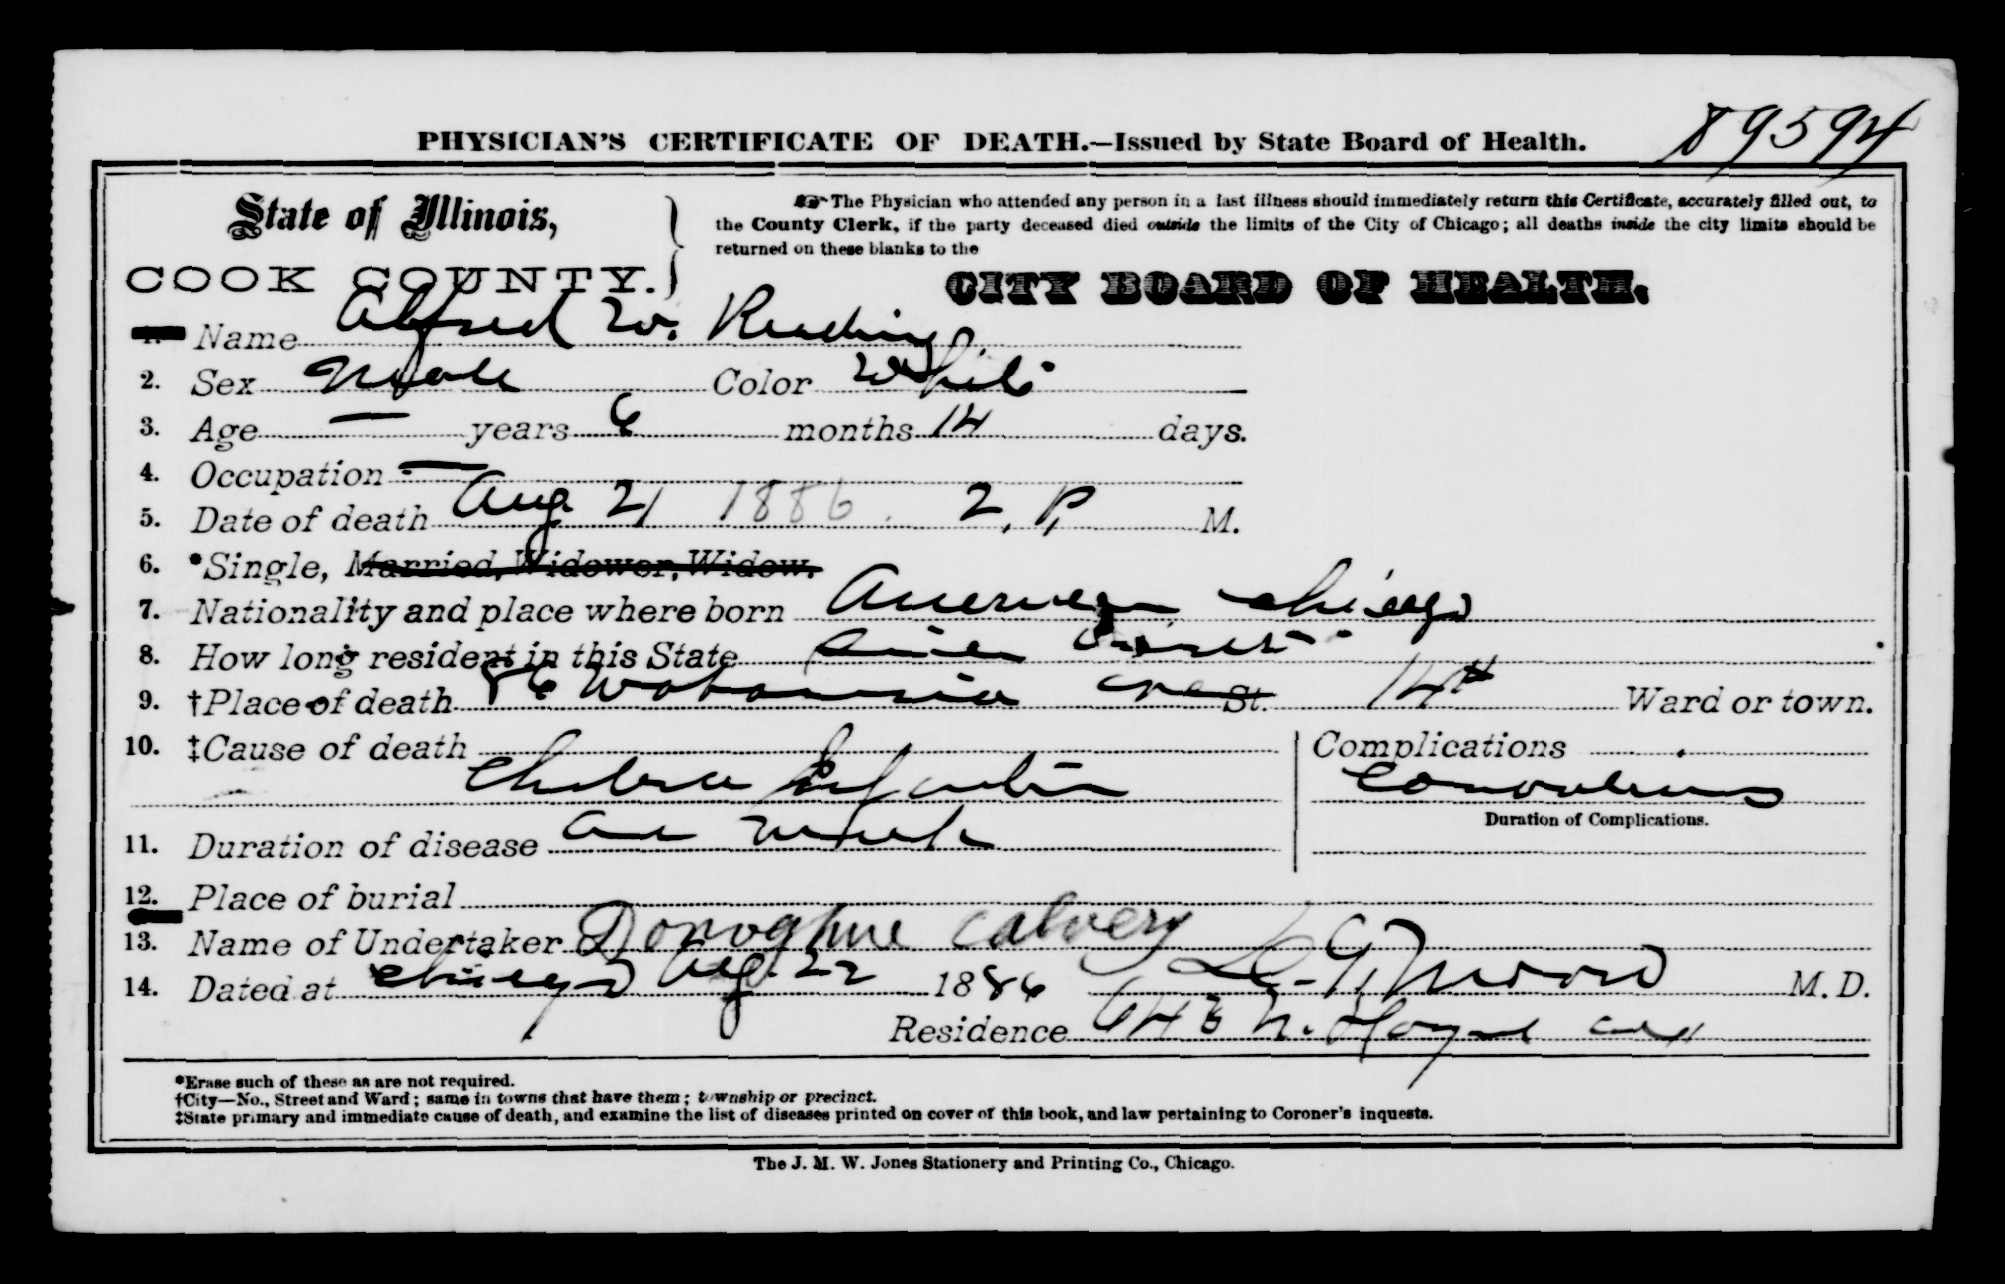 89594
PHYSICIAN'S CERTIFICATE OF DEATH.—Issued by State Board of Health.
State of Illinois,
COOK COUNTY.
The Physician who attended any person in a last illness should immediately return this Certificate, accurately filled out, to
the County Clerk, if the party deceased died outside the limits of the City of Chicago; all deaths inside the city limits should be
returned on these blanks to the
CITY BOARD OF HEALTH.
1. Name Alfred W. Reading
2. Sex Male Color White
3. Age — years 6 months 14 days.
4. Occupation —
5. Date of death Aug 21 1886. 2, P, M.
6. *Single, Married, Widower, Widow.
7. Nationality and place where born American Chicago
8. How long resident in this State Since
9. †Place of death 86 Wabansia Ave St. 14th Ward or town.
10. ‡Cause of death Complications
Cholera Infantum Convulsions
Duration of Complications.
11. Duration of disease one week
12. Place of burial
13. Name of Undertaker Donoghue Calvery
14. Dated at Chicago Aug. 22 1886 M.D.
Residence 643 N. Hoyne ave
*Erase such of these as are not required.
†City—No., Street and Ward; same in towns that have them; township or precinct.
‡State primary and immediate cause of death, and examine the list of diseases printed on cover of this book, and law pertaining to Coroner's inquests.
The J. M. W. Jones Stationery and Printing Co., Chicago.